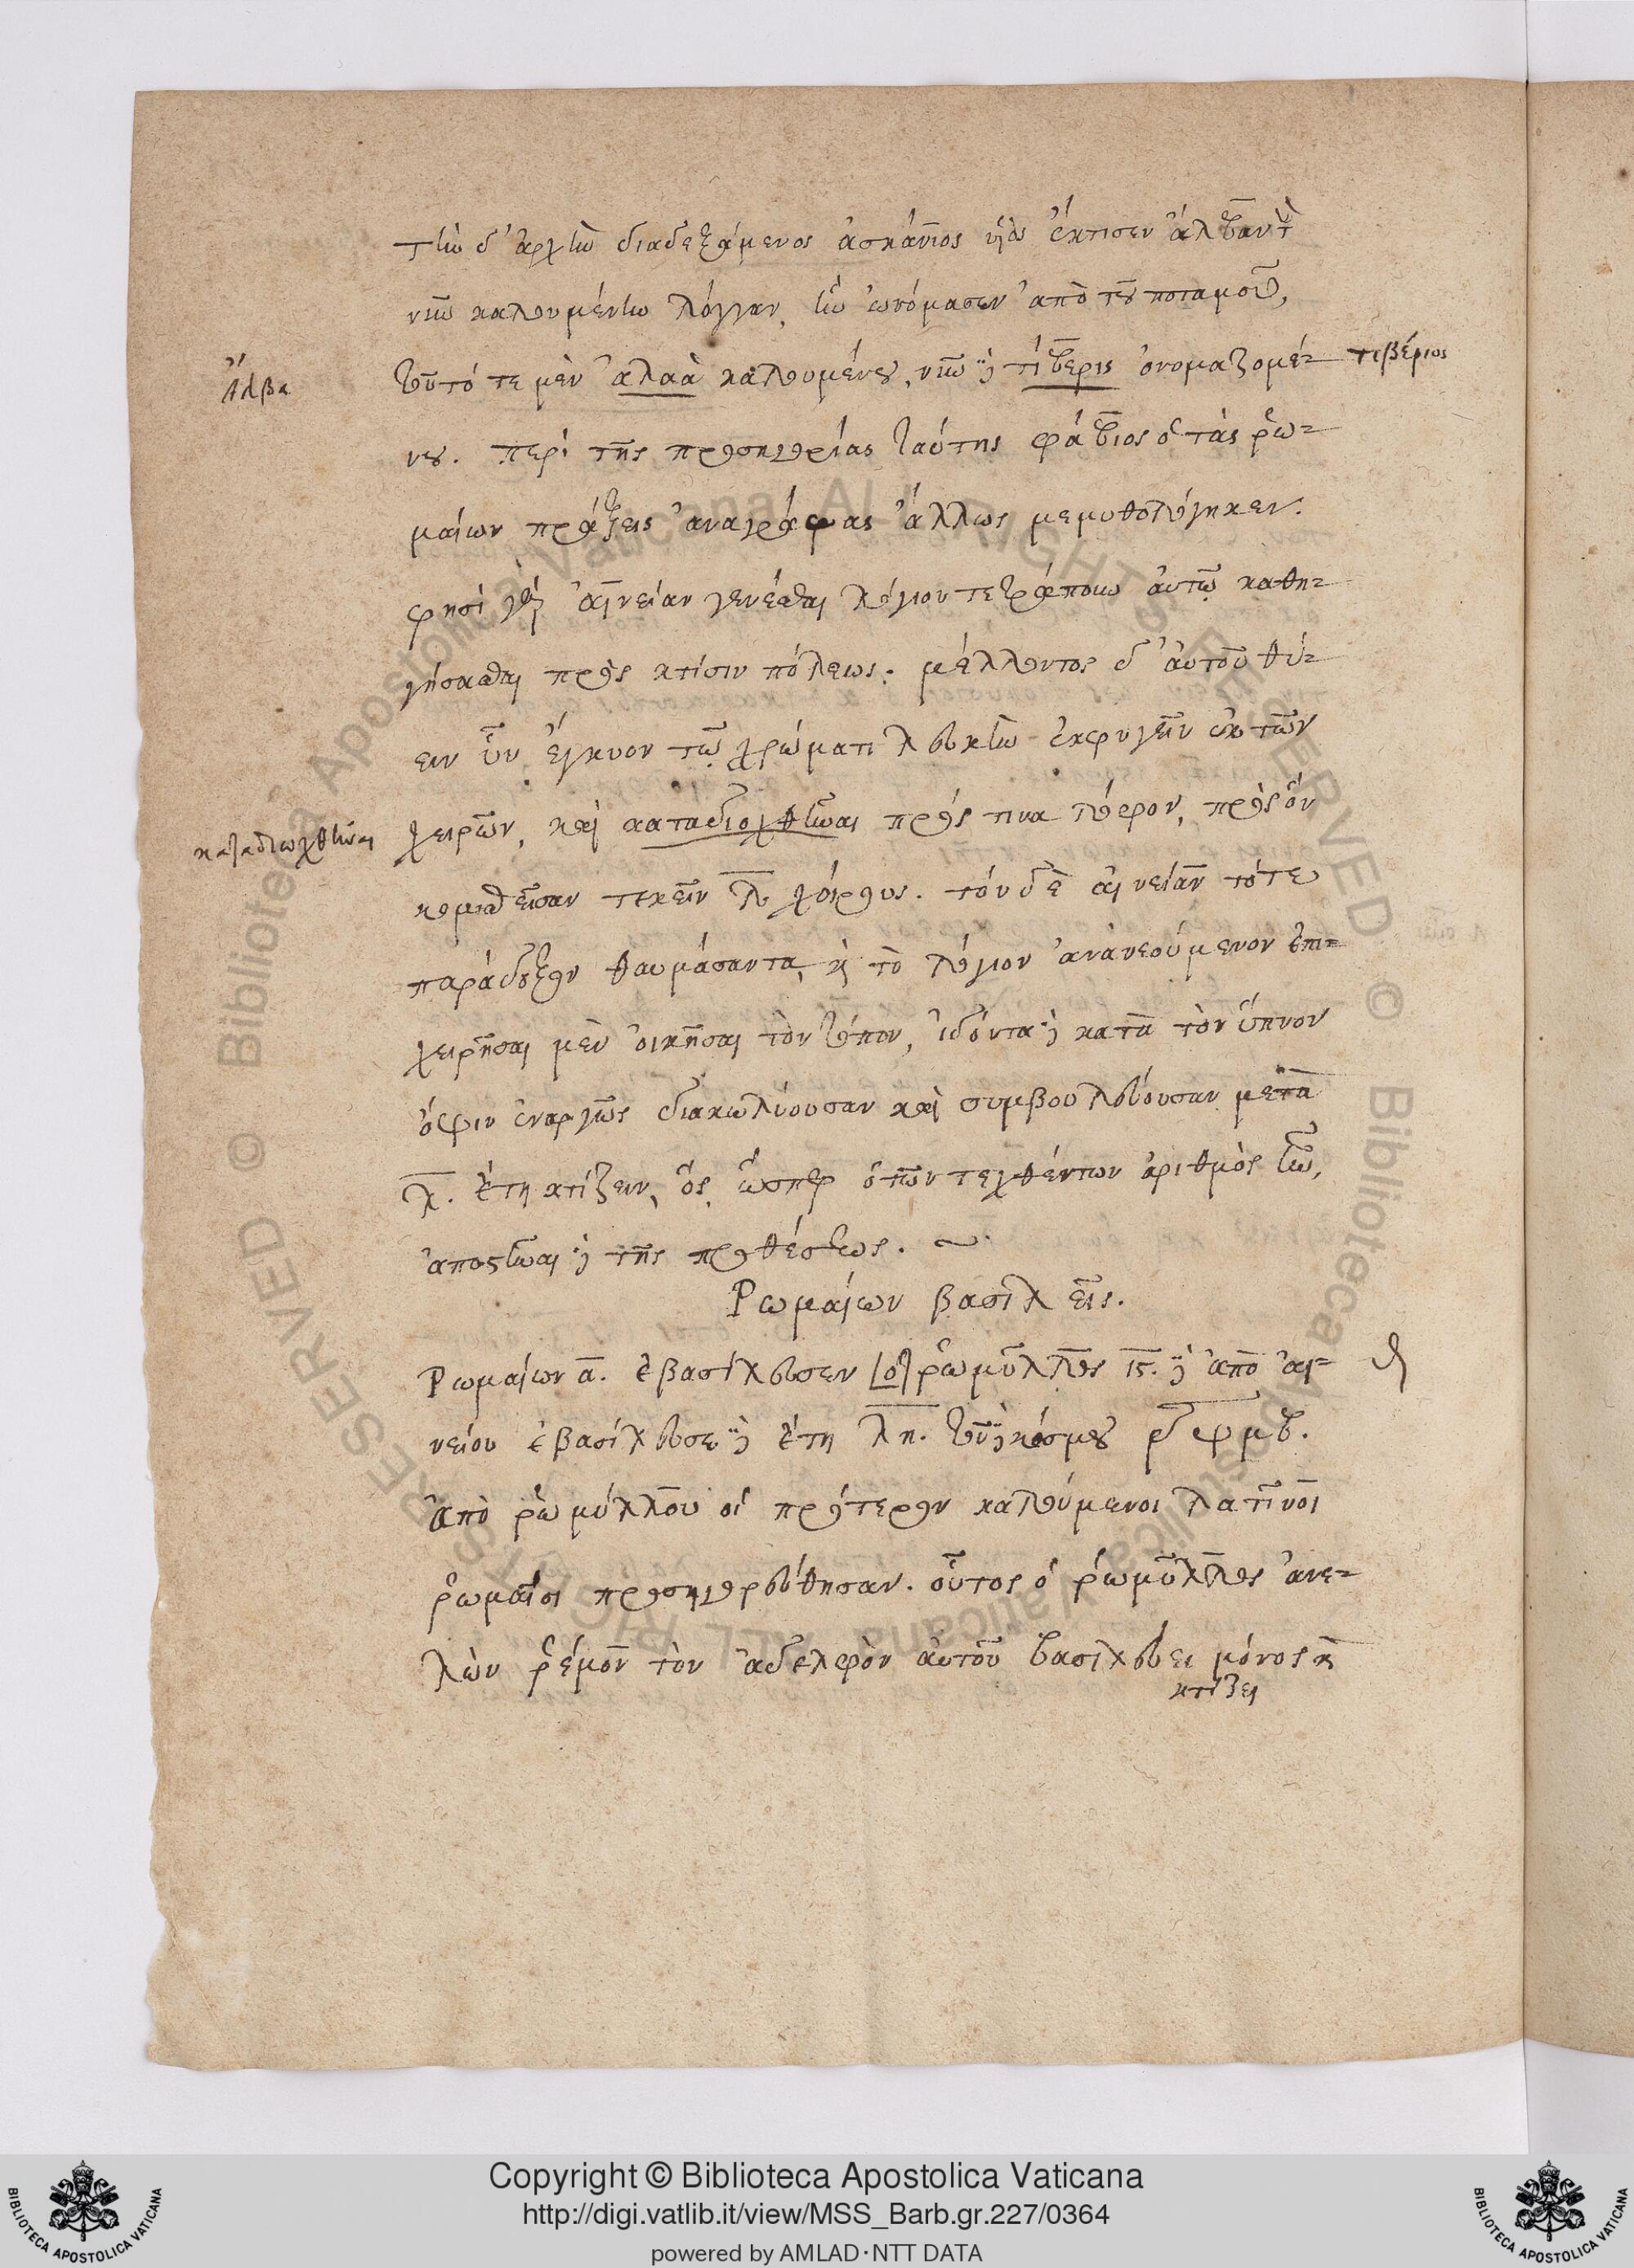 τὴν δ' ἀρχὴν διαδεξάμενος ἀσκάνιος υἱὸς ἔκτισεν ἄλβαν τὴν
νῦν καλουμένην λόγγαν, ἣν ὠνόμασεν ἀπὸ τοῦ ποταμοῦ,
Ἄλβα
τοῦτό τε μὲν ἀλαὰ καλουμένου, νῦν δὲ τίβερις ὀνομαζομέ-
τιβέριος
νου. περὶ τῆς προσηγορίας ταύτης φάβιος ὁ τὰς ῥω-
μαίων πράξεις ἀναγράφας ἄλλως μεμυθολόγηκεν.
φησὶ γὰρ αἰνείαν γενέσθαι λόγιον τετράπουν αὐτῷ καθη-
γήσασθαι πρὸς κτίσιν πόλεως. μέλλοντος δ' αὐτοῦ θύ-
ειν ὗν ἔγκυον τῷ χρώματι λευκὴν ἐκφυγεῖν ἐκ τῶν
καταδιωχθῆναι
χειρῶν, καὶ καταδιοχθῆναι πρός τινα λόφον, πρὸς ὃν
κομισθεῖσαν τεκεῖν λ χοίρους. τόνδε αἰνείαν τότε
παράδοξον θαυμάσαντα, καὶ τὸ λόγιον ἀνανεούμενον ἐπι-
χειρῆσαι μὲν οἰκῆσαι τὸν τόπον, ἰδόντα δὲ κατὰ τὸν ὕπνον
ὄψιν ἐναργῶς διακωλύουσαν καὶ συμβουλεύουσαν μετὰ
λ. ἔτη κτίζειν, ὅς ὥσπερ ὁ τῶν τεχθέντων ἀριθμὸς ἦν,
ἀποστῆναι δὲ τῆς προθέσεως. ~
Ρωμαίων βασιλεῖς.
Ρωμαίων α. ἐβασίλευσεν [ὁ] ῥωμύλλος ις. δὲ ἀπὸ αἰ-
νείου ἐβασίλευσε δὲ ἔτη λη. τοῦ δὲ κόσμου
ἀπὸ ῥωμύλλου οἱ πρότερον καλούμενοι λατῖνοι
ῥωμαῖοι προσηγορεύθησαν. οὗτος ὁ ῥωμύλλος ἀνε-
λὼν ῥέμον τὸν ἀδελφὸν αὐτοῦ βασιλεύει μόνος καὶ
κτίζει
Copyright © Biblioteca Apostolica Vaticana
http://digi.vatlib.it/view/MSS_Barb.gr.227/0364
powered by AMLAD·NTT DATA